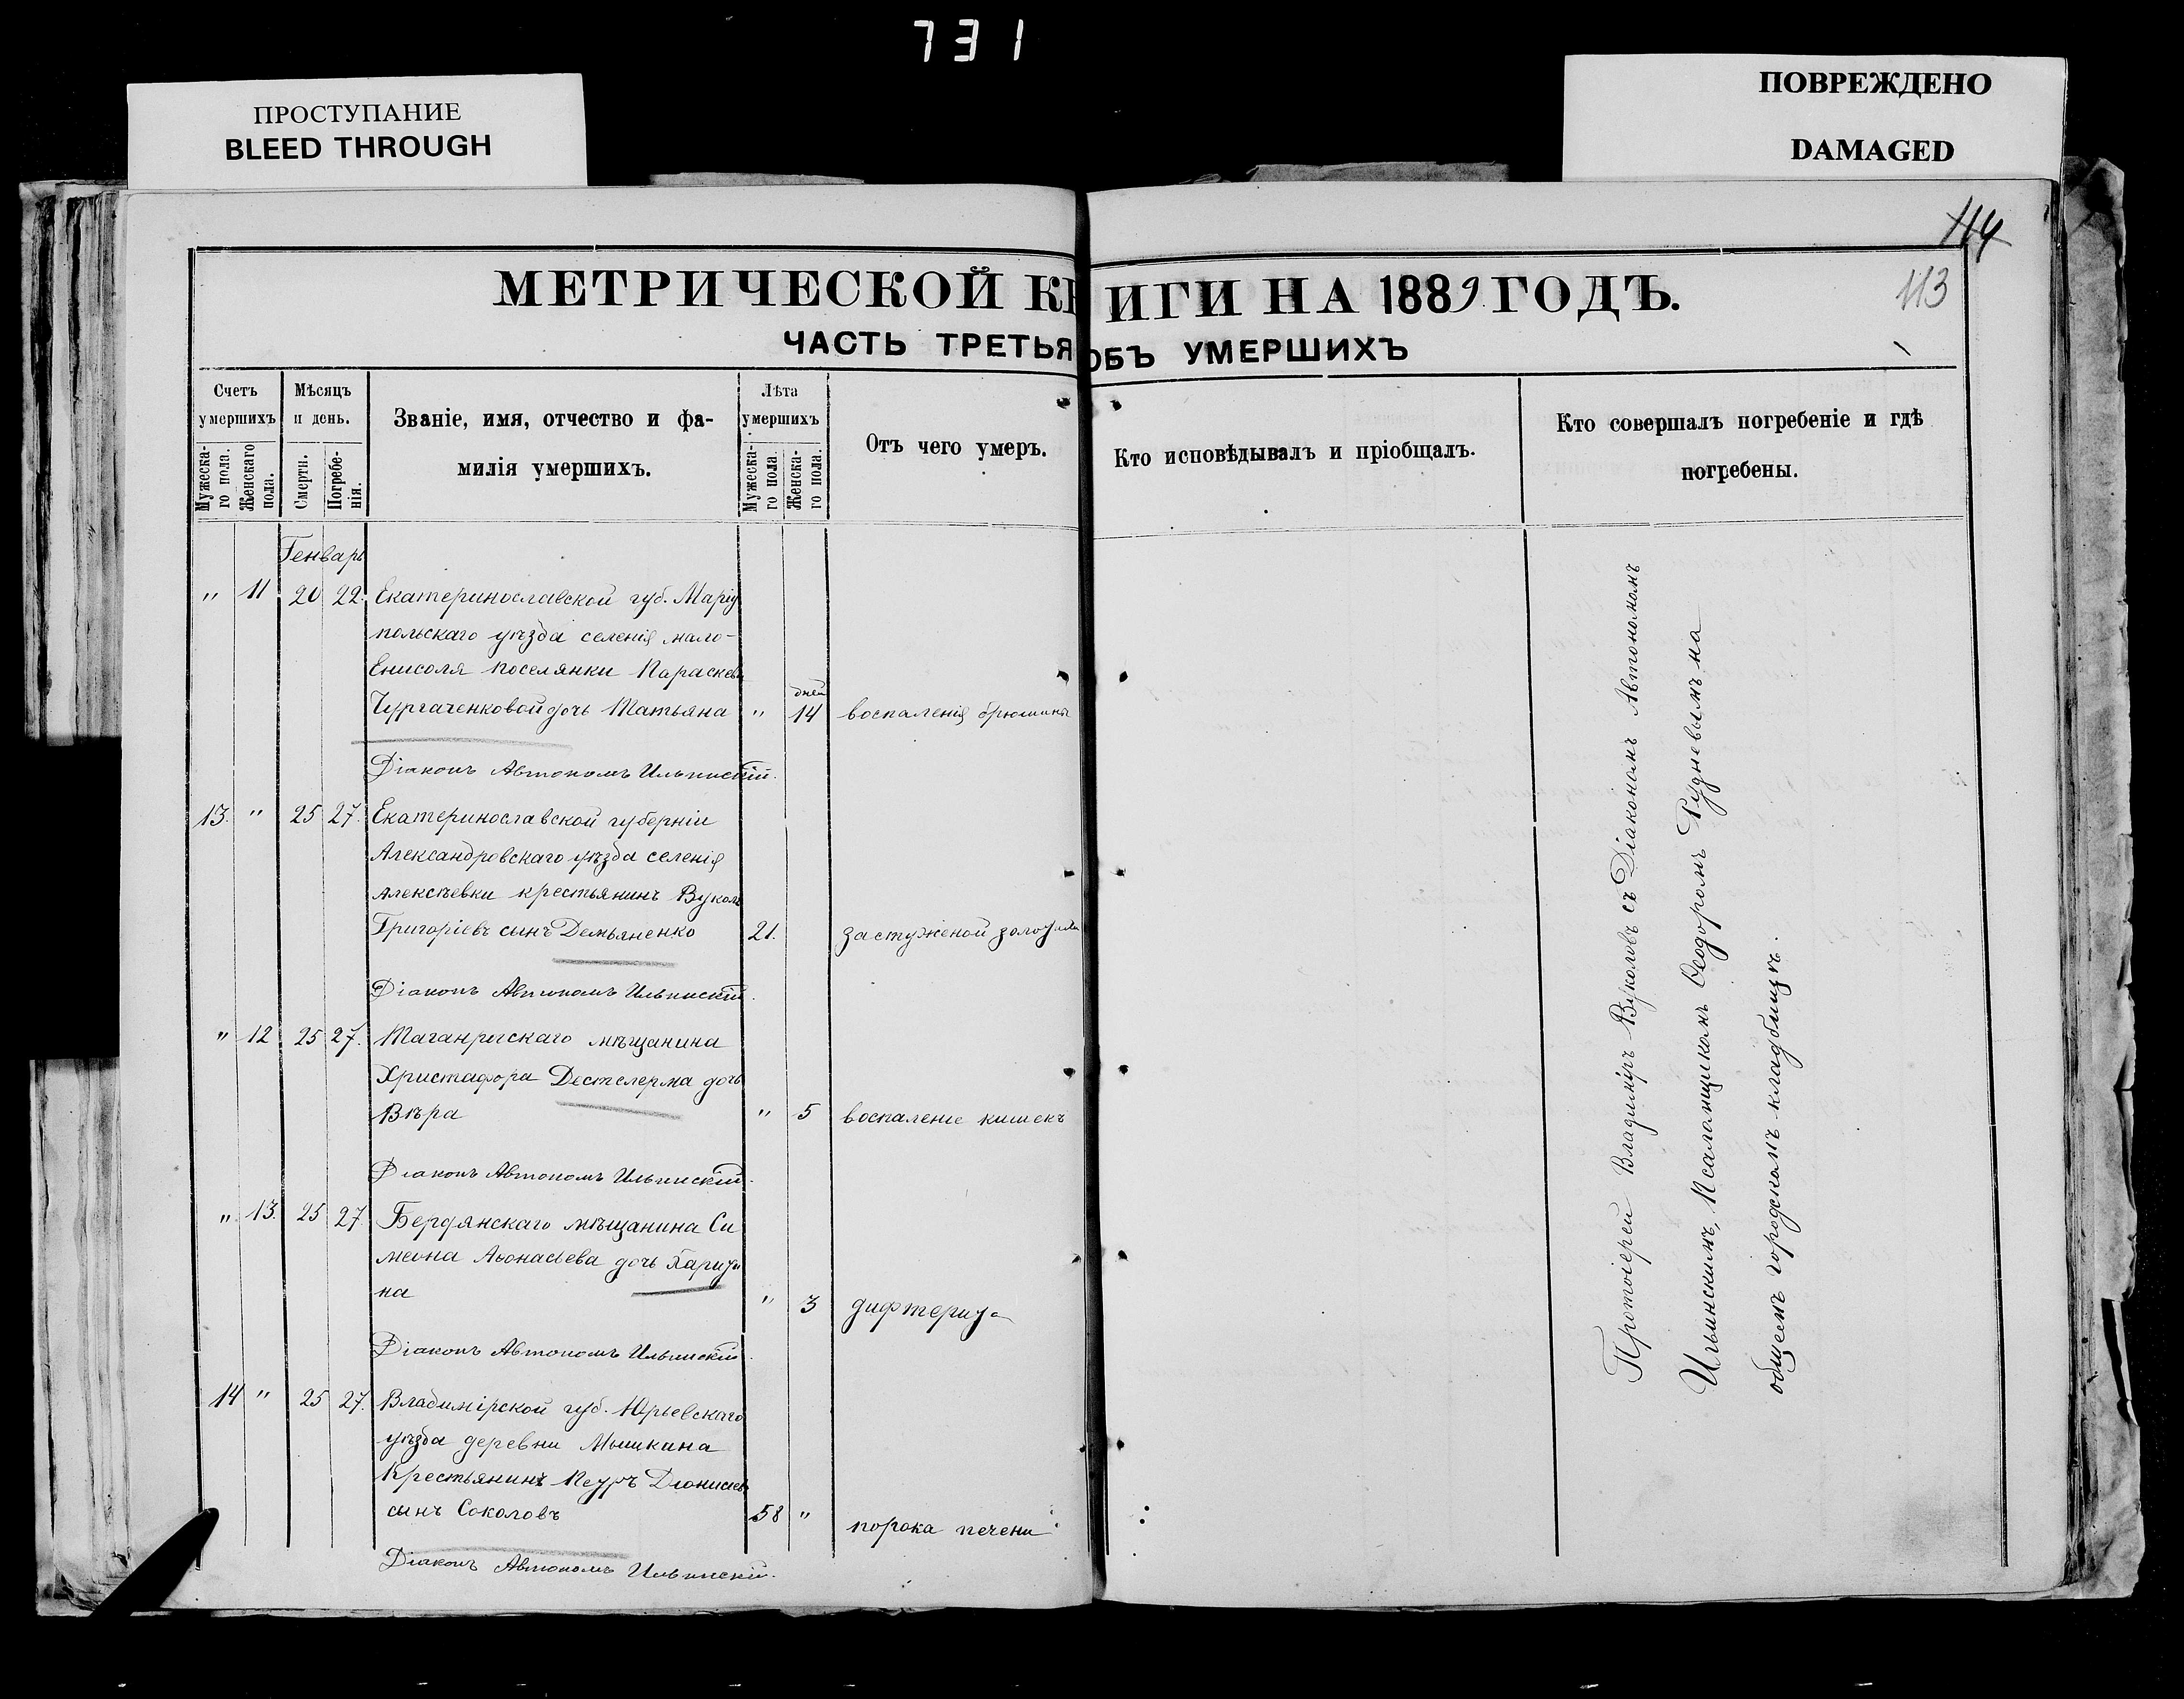 731
ПРОСТУПАНИЕ
BLEED THROUGH
ПОВРЕЖДЕНО
DAMAGED
114
113
МЕТРИЧЕСКОЙ КНИГИ НА 1889 ГОДЪ.
ЧАСТЬ ТРЕТЬЯ ОБЪ УМЕРШИХЪ
Счетъ умершихъ
Мужеска-го пола.
Женскаго пола.
Мѣсяцъ и день.
Смерти.
Погребе-нія.
Званіе, имя, отчество и фа-
милія умершихъ.
Лѣта умершихъ
Мужеска-го пола.
Женска-го пола.
Отъ чего умеръ.
Кто исповѣдывалъ и пріобщалъ.
Кто совершалъ погребеніе и гдѣ
погребены.
Генварь
" 11 20 22. Екатеринославской губ. Маріу
польскаго уѣзда селенія мало-
Енисоля поселянки Параскевы
дней
дочь Татьяна " 14 воспаленія брюшины
Діаконъ Автономъ Ильинскій.
13. " 25 27. Екатеринославской губерніи
Александровскаго уѣзда селенія
Алексѣевки крестьянинъ Вуколъ
Григоріевъ сынъ Демьяненко 21. застуженой золотухи
Діаконъ Автономъ Ильинскій.
" 12 25 27. Таганрогскаго мѣщанина
Христафора Дестелерма дочь
Вѣра " 5 воспаленіе кишекъ
Діаконъ Автономъ Ильинскій.
" 13. 25 27 Бердянскаго мѣщанина Си
меона Аѳонасьева дочь
на " 3 дифтерита
Діаконъ Автономъ Ильинскій.
14 " 25 27. Владимірской губ. Юрьевскаго
уѣзда деревни Мышкина
Крестьянинъ Діонисіевъ
сынъ Соколовъ 58 " порока печени
Діаконъ Автономъ Ильинскій.
Протоіерей Владиміръ Вуколовъ съ Діакономъ Автономомъ
Ильинскимъ, Псаломщикомъ Ѳеодоромъ Рудневымъ на
общемъ городскомъ кладбищѣ.